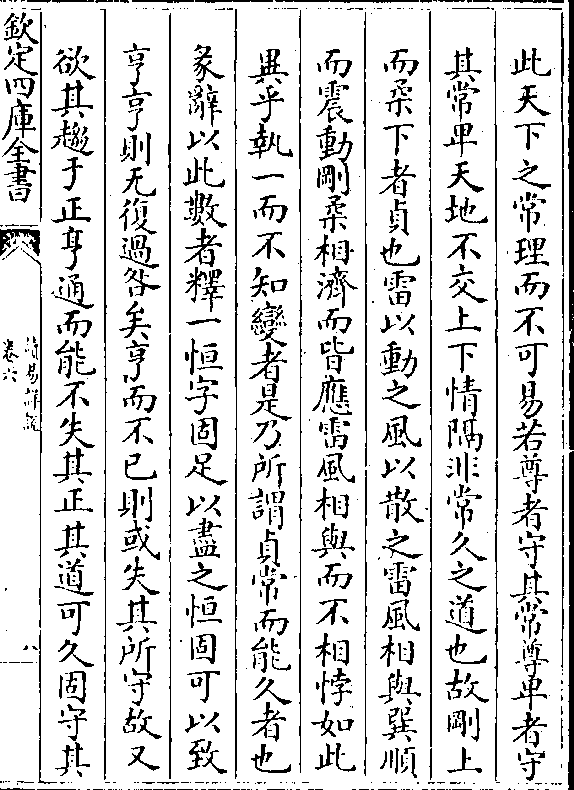 此天下之常理而不可易若尊者守其常尊卑者守
其常卑天地不交上下情隔非常久之道也故剛上
而柔下者貞也雷以動之風以散之雷風相與巽順
而震動剛柔相濟而皆應雷風相與而不相悖如此
異乎執一而不知變者是乃所謂貞常而能久者也
彖辭以此數者釋一恒字固足以盡之恒固可以致
亨亨則无復過咎矣亨而不已則或失其所守故又
欲其趨于正亨通而能不失其正其道可久固守其
欽定四庫全書
讀易詳說
卷六
八